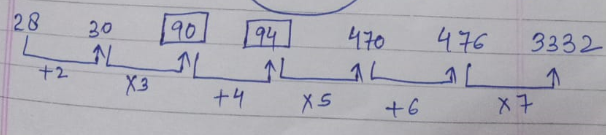 28 30 90 94 470 476 3332
+2 x3 +4 x5 +6 x7